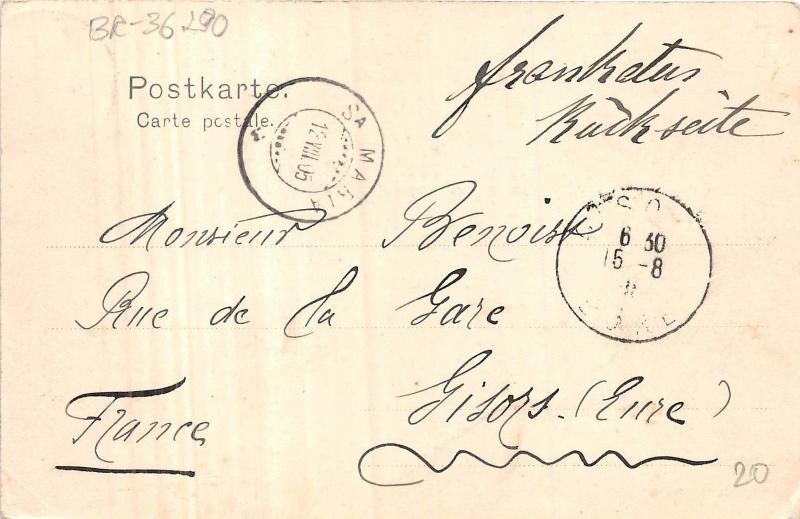 BR-36290
frankatur
Rückseite
Postkarte.
Carte postale.
SA MARIA
12 VIII 05
Monsieur Benoist
6 30
15 -8
EURE
Rue de la Gare
Gisors. (Eure)
France
20